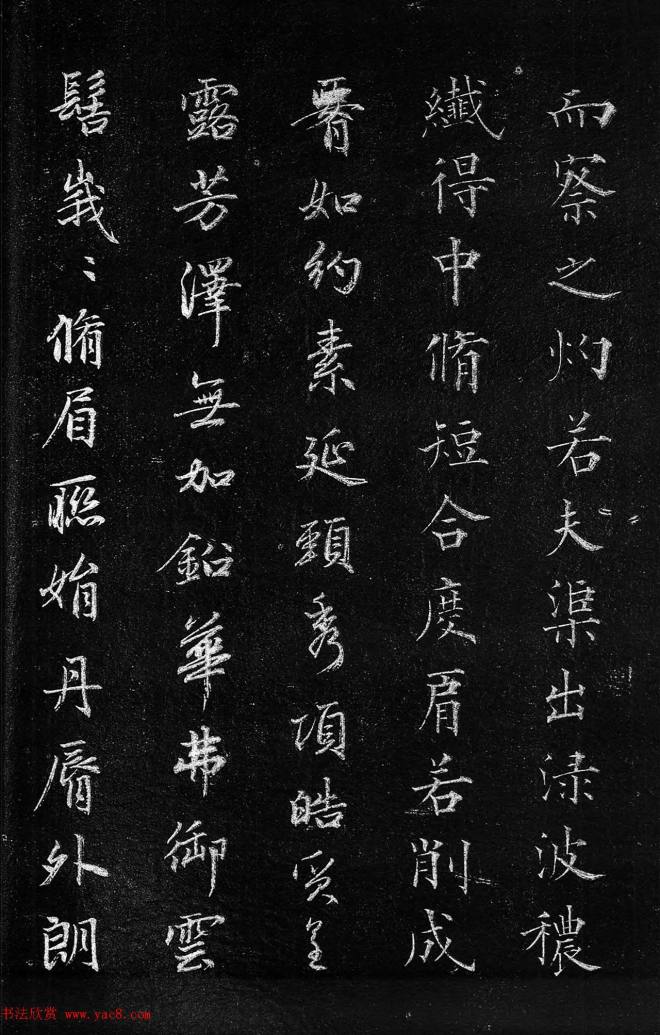 而察之灼若夫渠出渌波穠
纎得中脩短合度肩若削成
𦝫如約素延頸秀項皓質呈
露芳澤無加鉛華弗御雲
髻峩〻脩眉聮娟丹脣外朗
书法欣赏 www.yac8.com